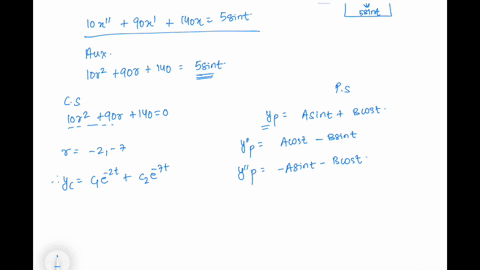 10x'' + 90x' + 140x = 5sint
5sint
Aux.
10r² + 90r + 140 = 5sint
C.S
10r² + 90r + 140 = 0
r = -2, -7
∴ yc = c₁e^-2t + c₂e^-7t
P.S
yp = Asint + Bcost.
y'p = Acost - Bsint
y''p = -Asint - Bcost.